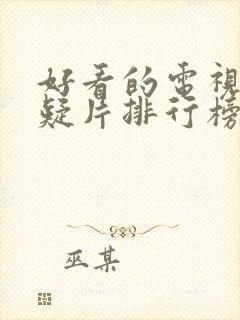 好看的電視
疑片排行榜
巫某